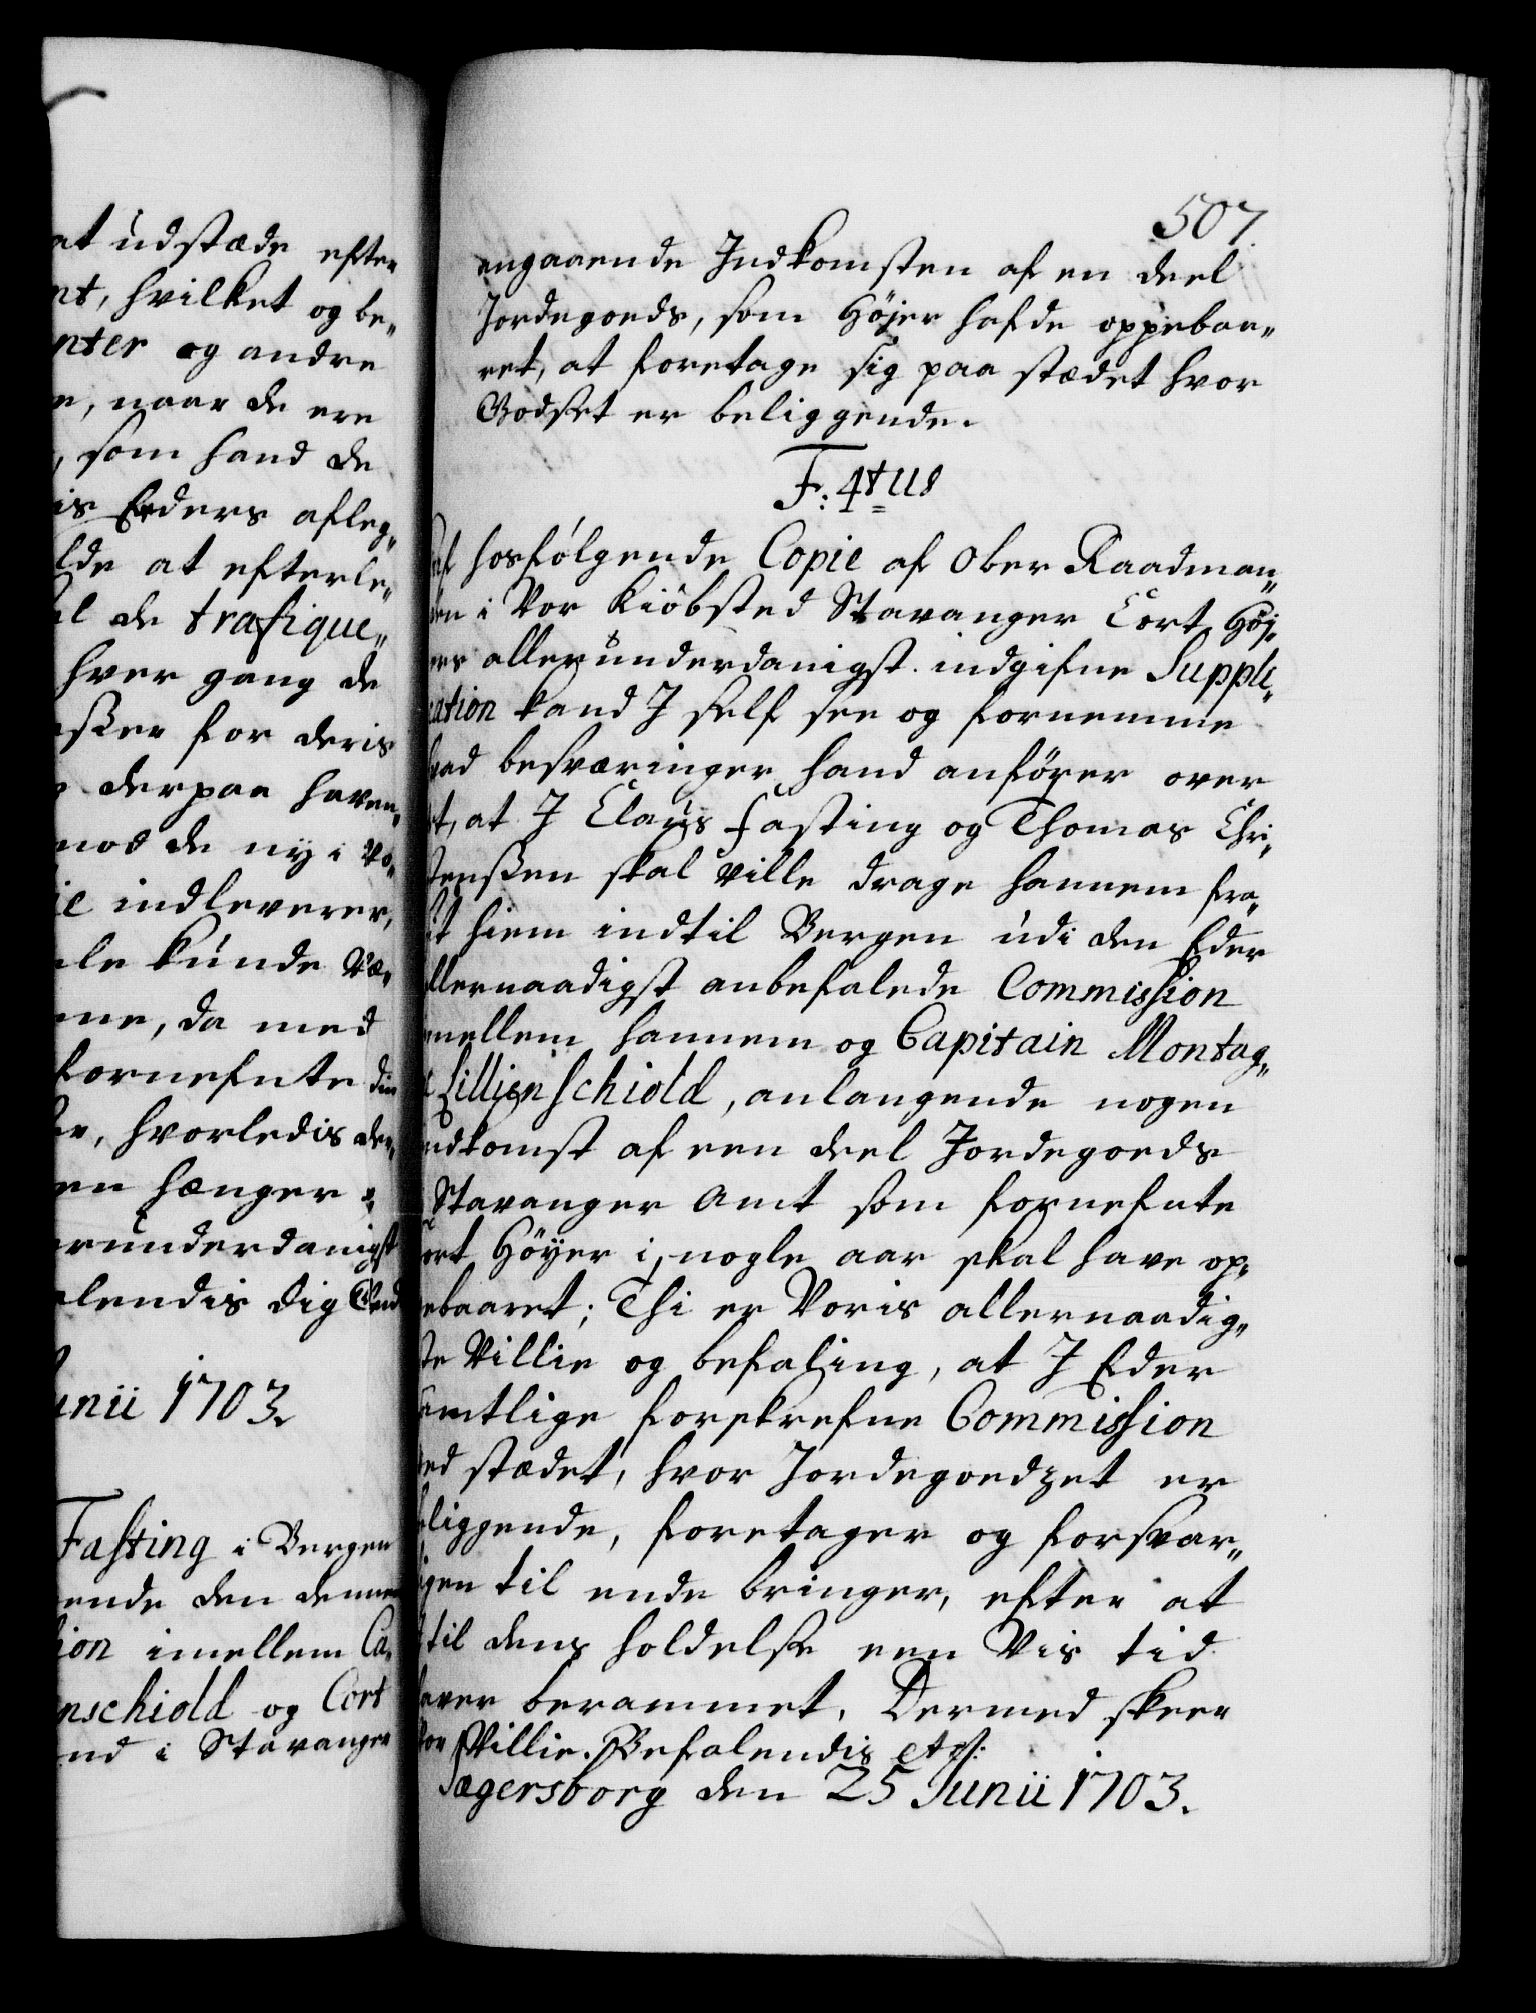 at udstæde efter
nt, hvilket og be„
nter og andre
e, naar de ere
, som hand de
is Eders afleg„
lde at efterle„
l de trafique„
hver gang de
aßer for deris
derpaa haven„
mod de ny i Vo„
ie indleverer,
le kunde Væ„
ne, da med
fornefnte din
er, hvorledis der„
en hænger „
erunderdanigst
lendis dig Gud
Junii 1703.
Fasting i Bergen
ende den dennem
ion imellem Ca„
nschiold og Cort
nd i Stavanger
507.
angaaende Indkomsten af en deel
Jordegoeds, som Höjer hafde oppebaa„
ret, at foretage sig paa stædet hvor
Godset er beliggende.
F: 4tus
Af hosfölgende Copie af Ober Raadman„
den i Vor Kiöbsted Stavanger Cort Höj„
ers allerunderdanigst indgifne Suppli„
cation kand I self see og fornemme
hvad besværinger hand anförer over
et, at I Claus Fasting og Thomas Chri„
stenßen skal ville drage hannem fra„
sit hiem indtil Bergen udi den Eder
allernaadigst anbefalede Commission
imellem hannem og Capitain Montag„
e Lillienschiold, anlangende nogen
Indkomst af een deel Jordegoeds
i Stavanger Amt som fornefnte
Cort Höyer i nogle aar skal have op„
pebaaret; Thi er Voris allernaadig„
ste Villie og befaling, at I Eder
samtlige forskrefne Commission
ved stædet, hvor Jordegoedzet er
beliggende, foretager og forsvar„
ligen til ende bringer, efter at
I til dens holdelse een Vis tid
haver berammet. Dermed skeer
Vor Villie. Befalendis etc:
Jægersborg den 25 Junii 1703.